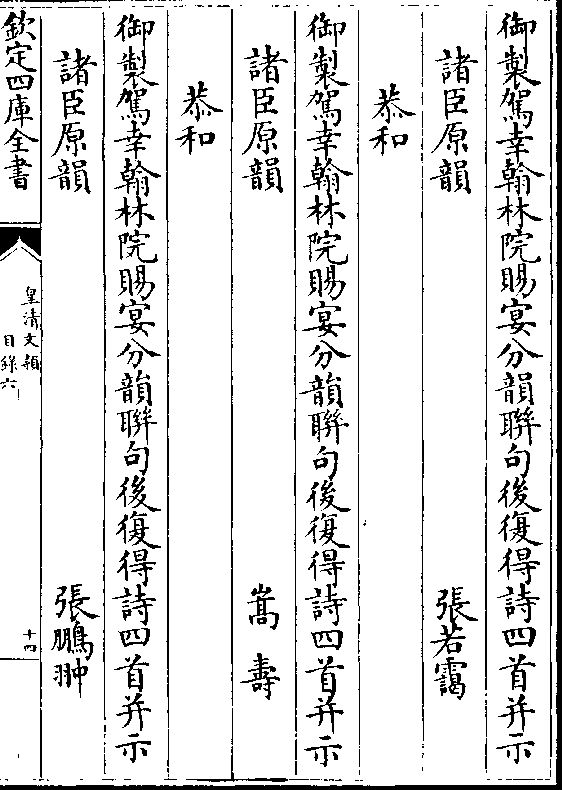 御製駕幸翰林院賜宴分韻聯句後復得詩四首并示
諸臣原韻　張若靄
恭和
御製駕幸翰林院賜宴分韻聯句後復得詩四首并示
諸臣原韻　嵩壽
恭和
御製駕幸翰林院賜宴分韻聯句後復得詩四首并示
諸臣原韻　張鵬翀
欽定四庫全書
皇清文穎
目錄六
十四